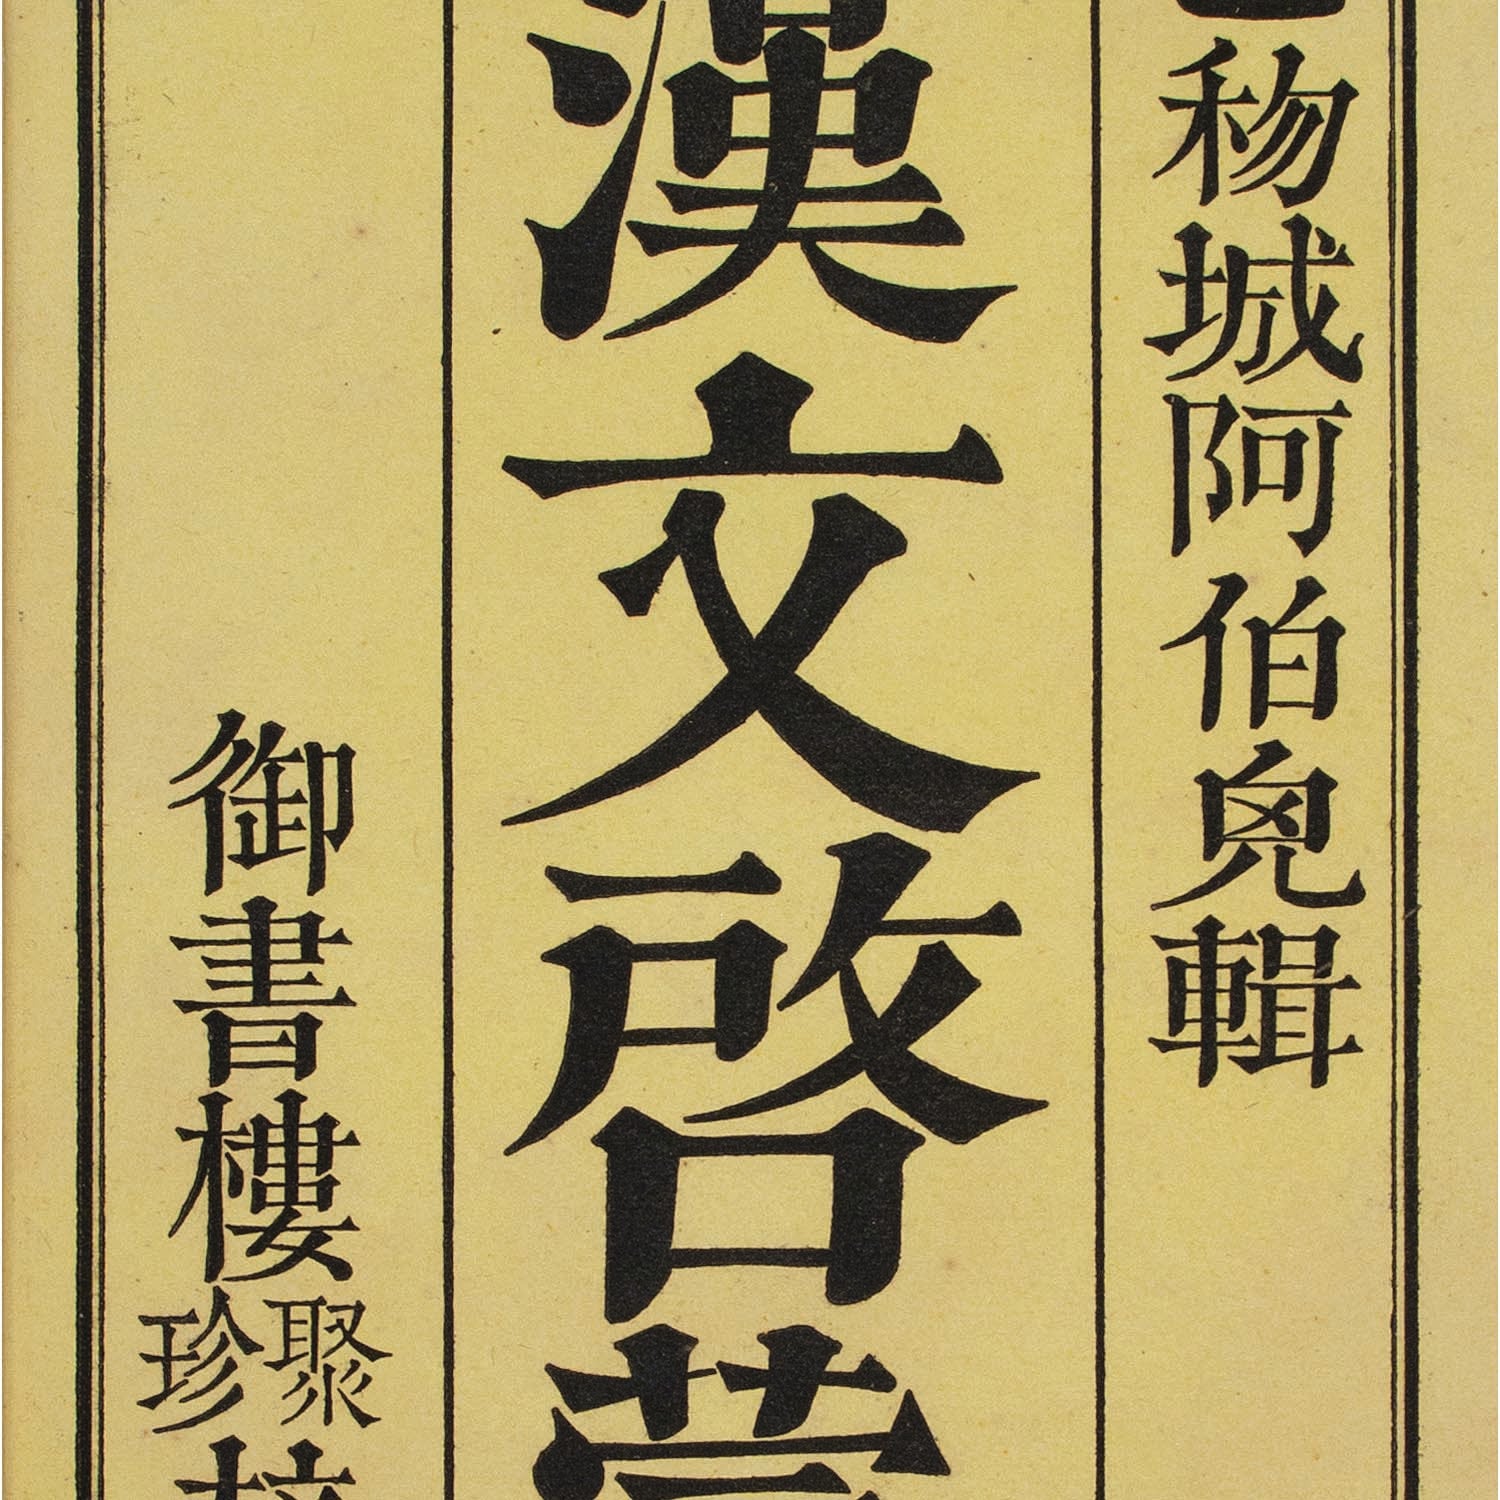 𥝢城阿伯兒輯
漢文啓
御書樓聚珍